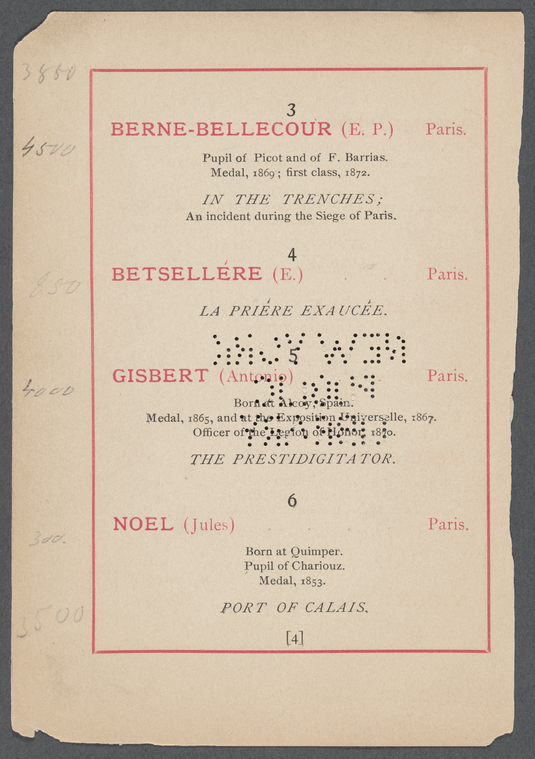 3850
3
BERNE-BELLECOUR (E. P.) Paris.
4500
Pupil of Picot and of F. Barrias.
Medal, 1869; first class, 1872.
IN THE TRENCHES;
An incident during the Siege of Paris.
4
BETSELLÉRE (E.) . . Paris.
850
LA PRIÉRE EXAUCÉE.
5
GISBERT (Antonio) . Paris.
4000
Born at Alcoy, Spain.
Medal, 1865, and at the Exposition Universelle, 1867.
Officer of the Legion of Honor, 1870.
THE PRESTIDIGITATOR.
6
NOEL (Jules) . . . . Paris.
300.
Born at Quimper.
Pupil of Chariouz.
Medal, 1853.
PORT OF CALAIS.
3500
[4]